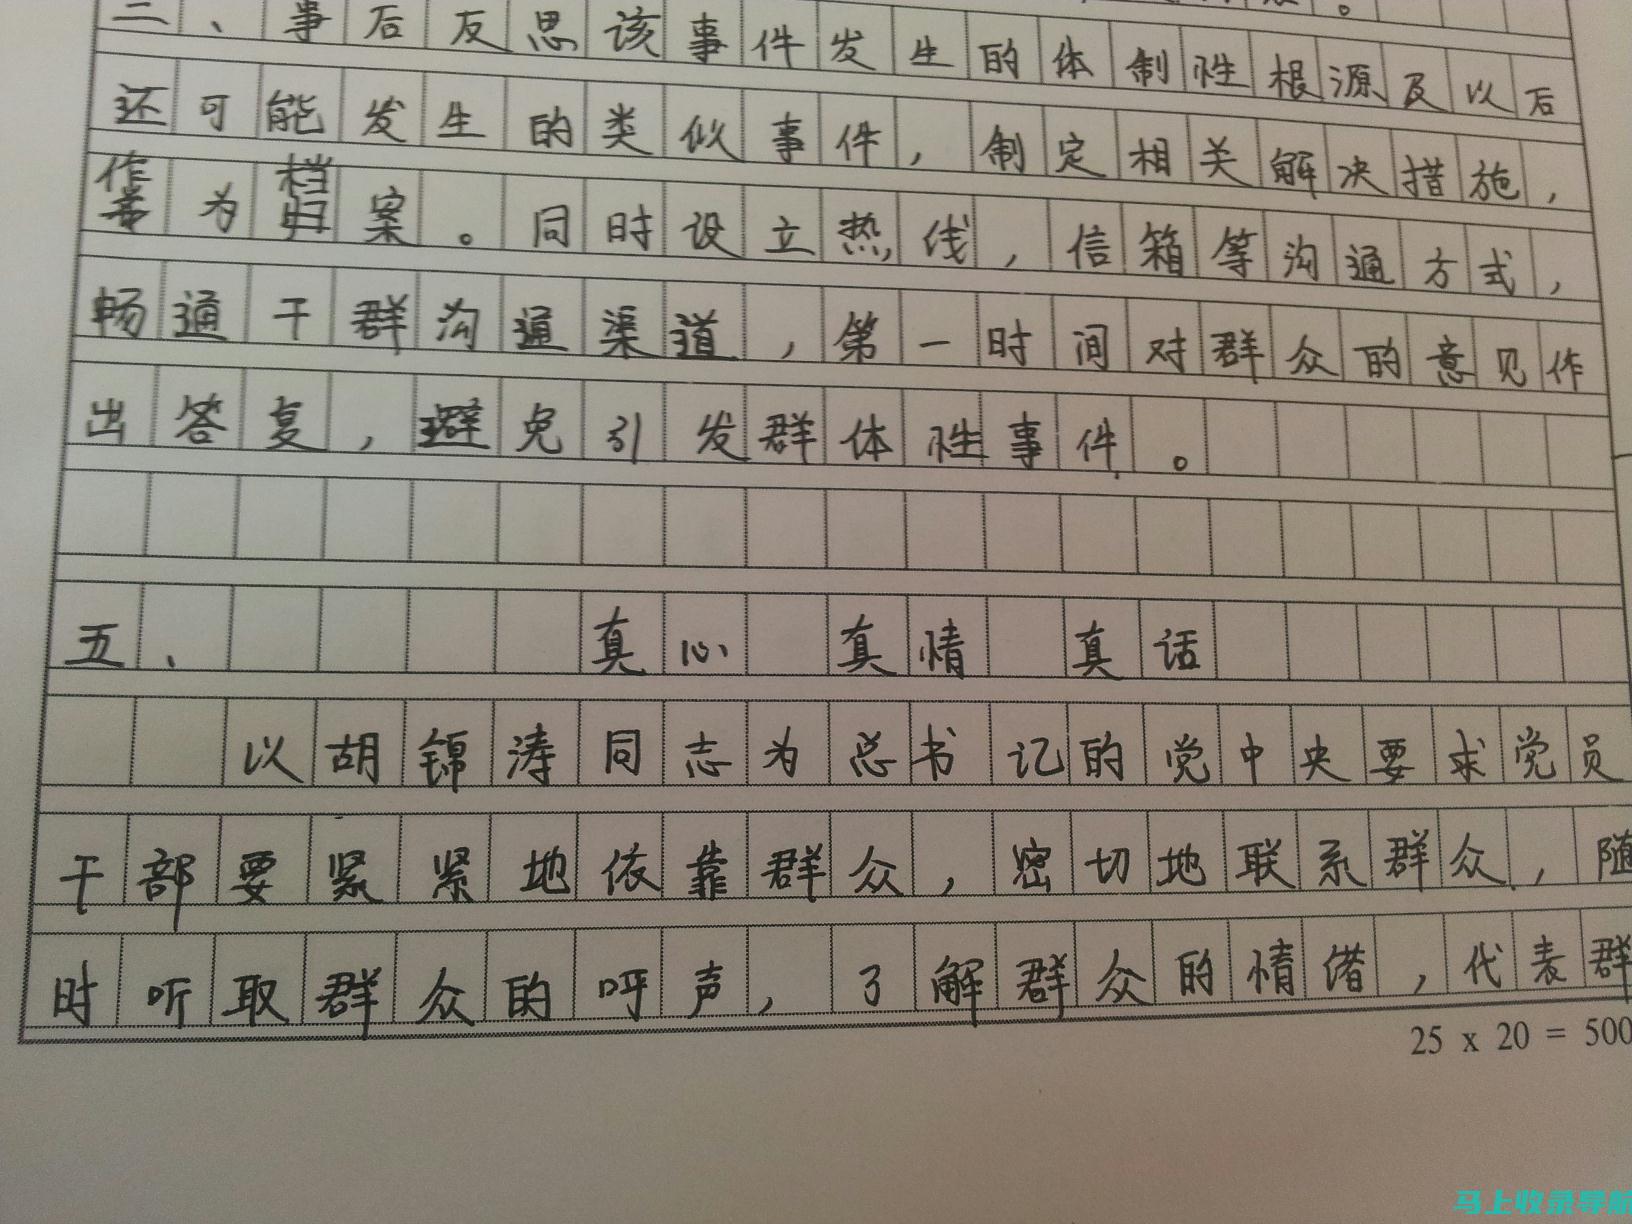 三、事后反思该事件发生的体制性根源及以后
还可能发生的类似事件，制定相关解决措施，
作为档案。同时设立热线，信箱等沟通方式，
畅通干群沟通渠道，第一时间对群众的意见作
出答复，避免引发群体性事件。
五、 真心 真情 真话
以胡锦涛同志为总书记的党中央要求党员
干部要紧紧地依靠群众，密切地联系群众，随
时听取群众的呼声，了解群众的情绪，代表群
25 x 20 = 500
马上收录导航